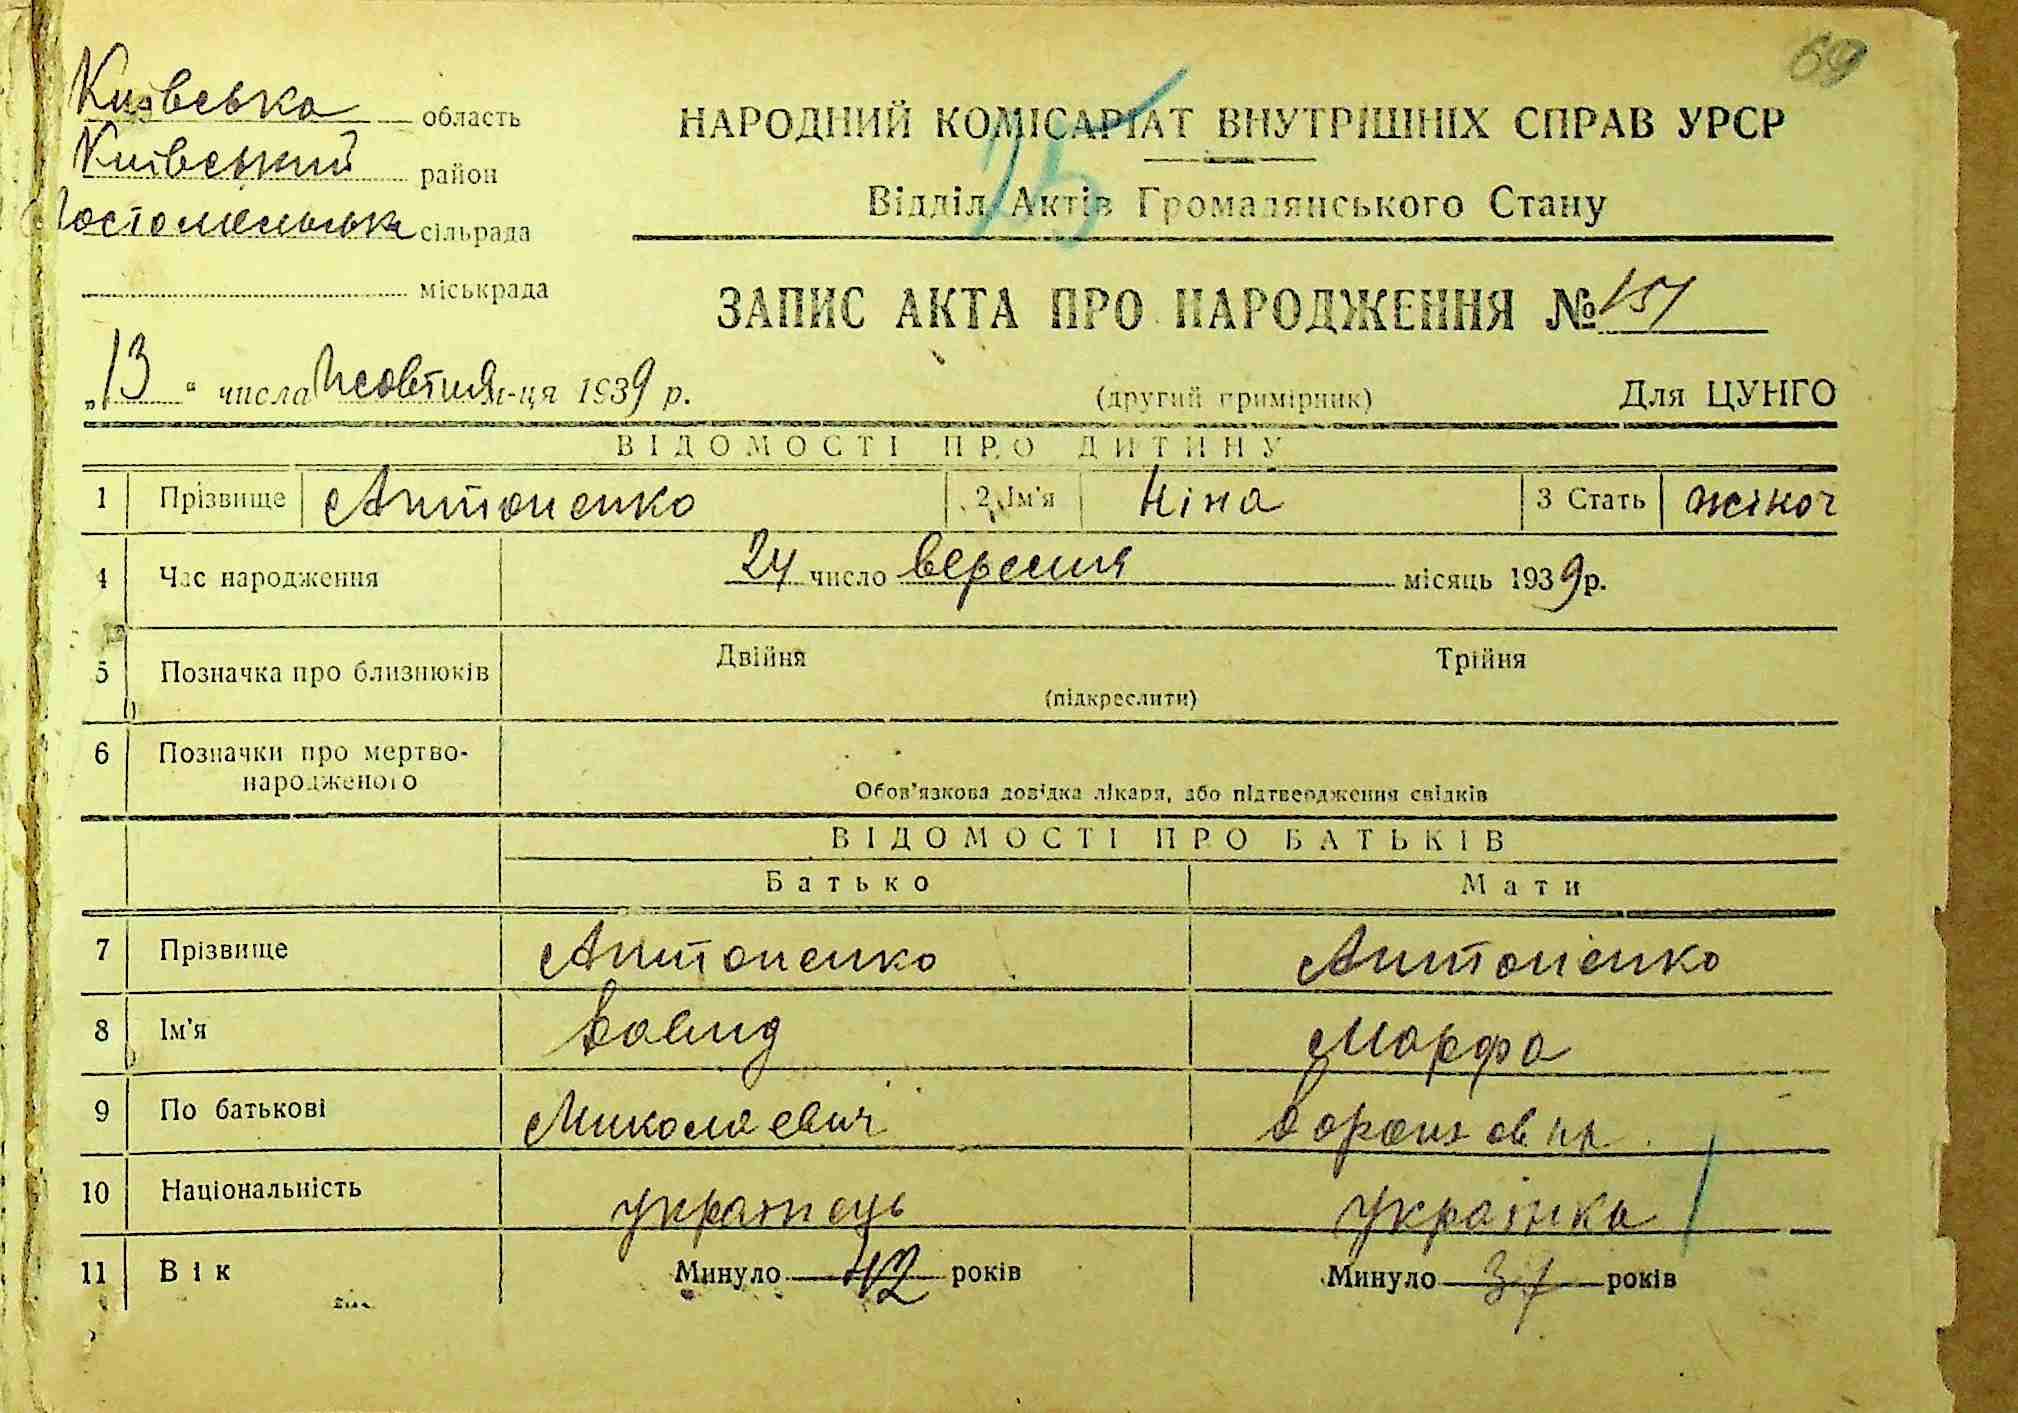 69
Київська область
Київський район
Гостомельська сільрада
міськрада
НАРОДНИЙ КОМІСАРІАТ ВНУТРІШНІХ СПРАВ УРСР
25
Відділ Актів Громадянського Стану
ЗАПИС АКТА ПРО НАРОДЖЕННЯ № 151
„13“ числа Жовтня м-ця 1939 р. (другий примірник) Для ЦУНГО
ВІДОМОСТІ ПРО ДИТИНУ
1 Прізвище Антоненко 2 Ім'я Ніна 3 Стать жіноч
4 Час народження 24 число вересня місяць 1939 р.
5 Позначка про близнюків Двійня Трійня
(підкреслити)
6 Позначки про мертво-
народженого
Обов'язкова довідка лікаря, або підтвердження свідків
ВІДОМОСТІ ПРО БАТЬКІВ
Батько Мати
7 Прізвище Антоненко Антоненко
8 Ім'я Давид Марфа
9 По батькові Миколаевич
10 Національність українець українка
11 Вік Минуло 42 років Минуло 37 років